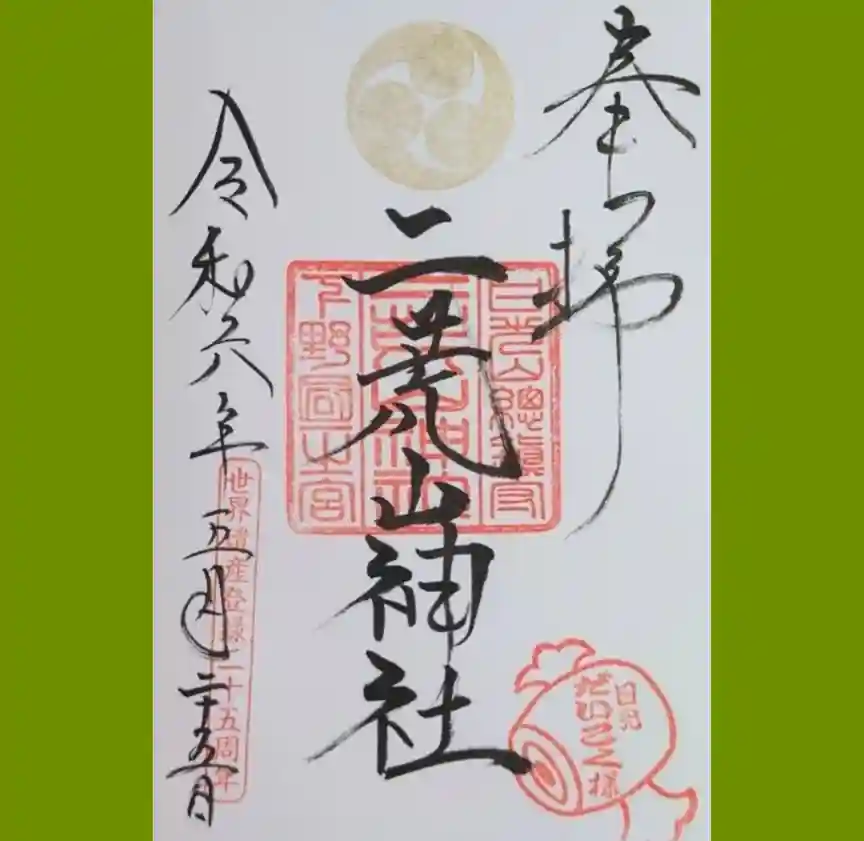 奉拝
日光山總鎮守
二荒山神社
二荒山神社
下野國一之宮
令和六年五月二十五日
世界遺産登録二十五周年
日光
だいこく様